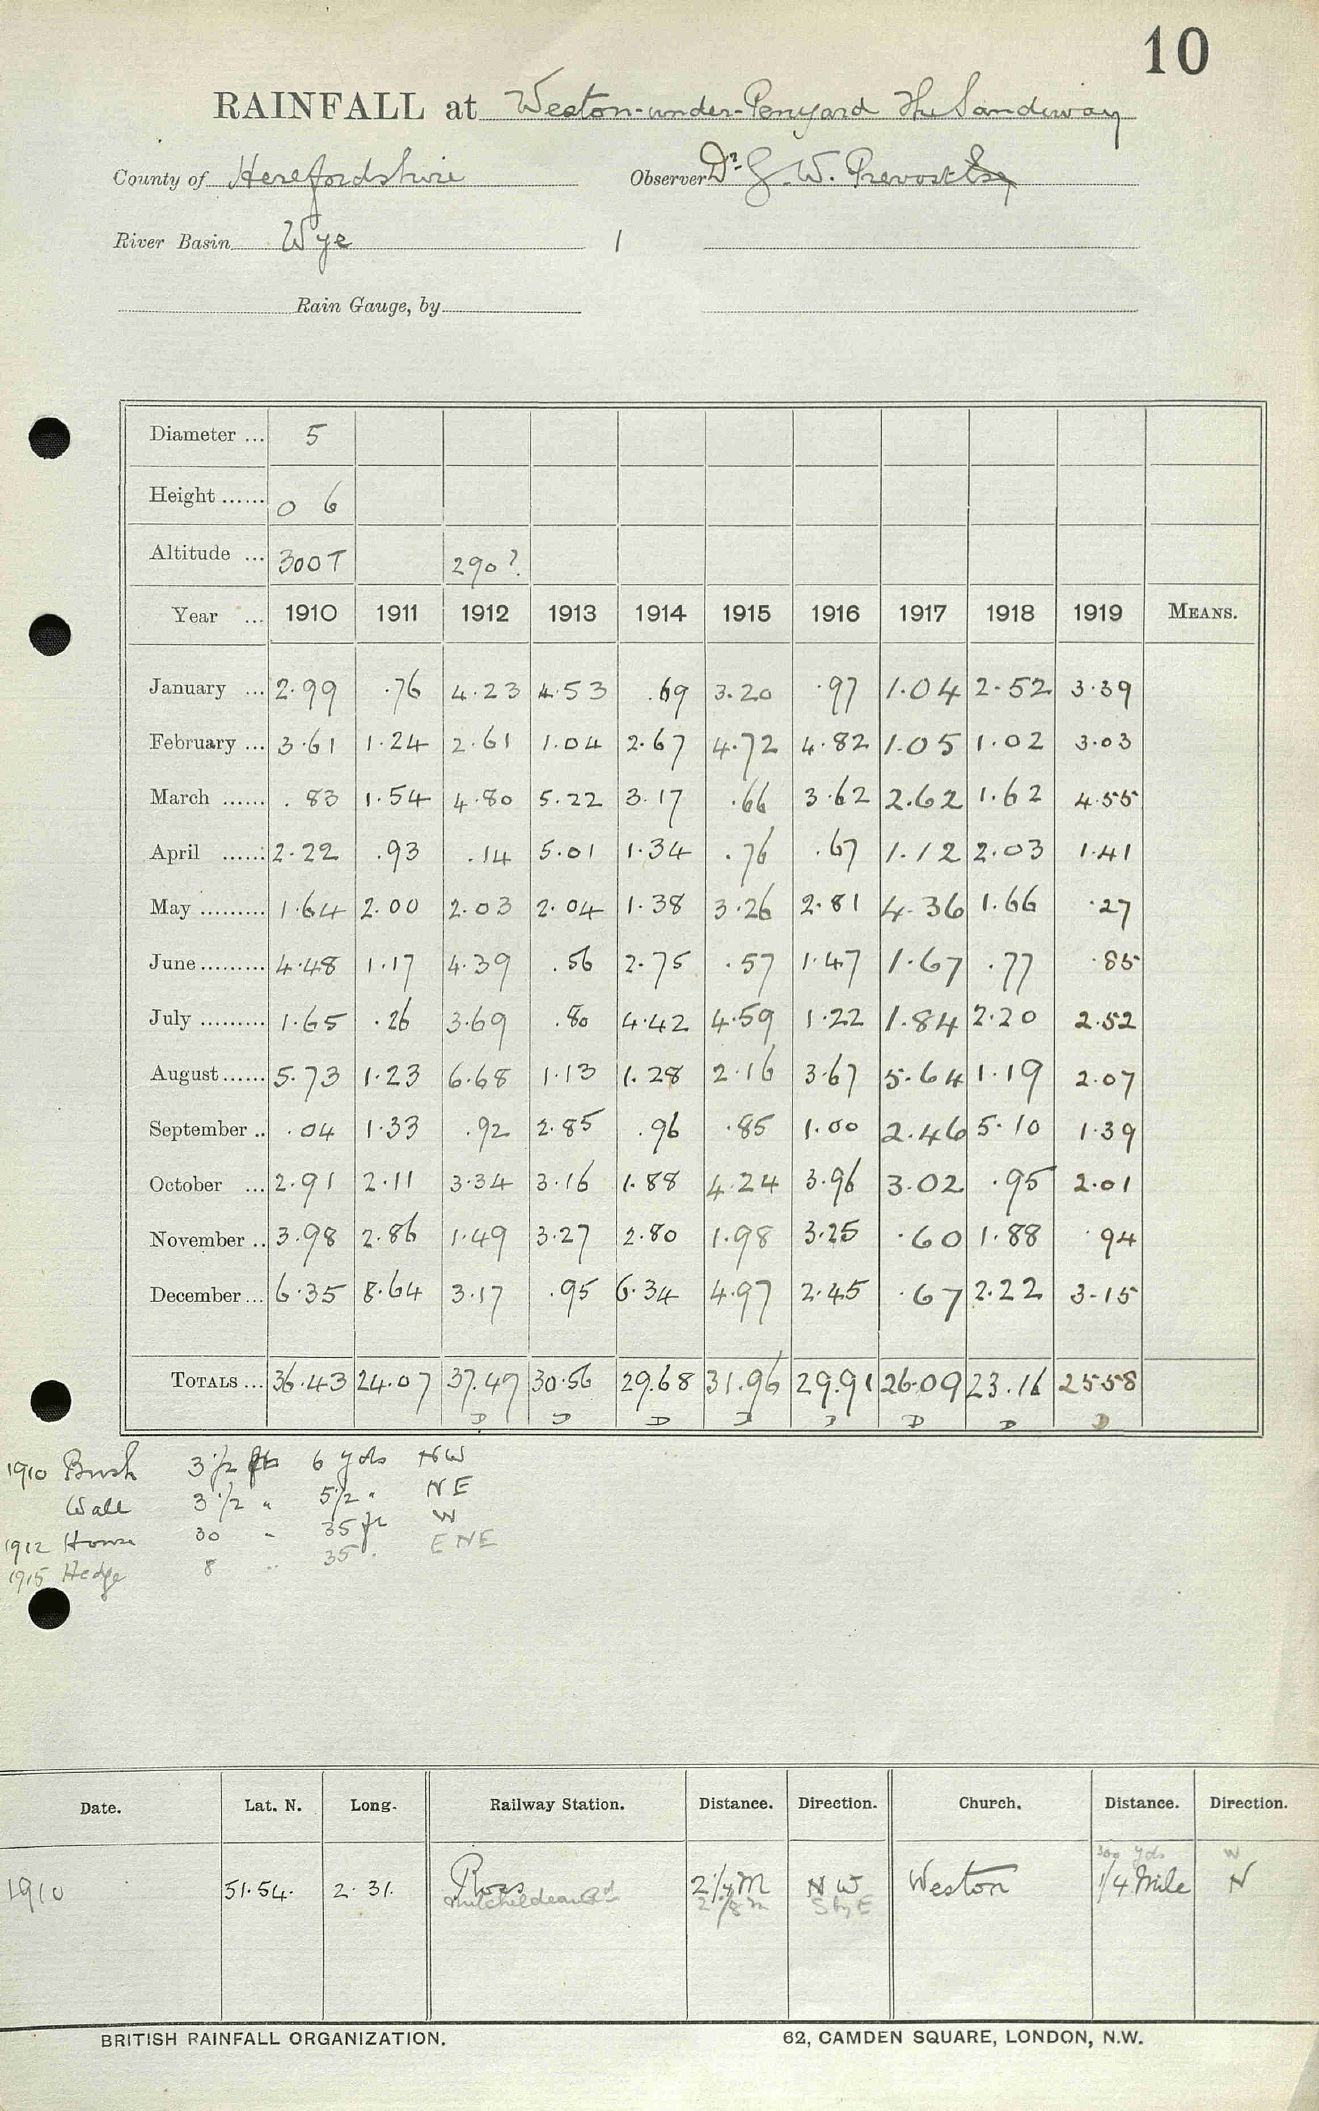 10
RAINFALL at Weston-under-Penyard The Sandiway
County of Herefordshire Observer Dr. G. W. Prevost Esq
River Basin Wye 1
Rain Gauge, by
Diameter ... 5
Height ...... 0 6
Altitude ... 300T 290?
Year ... 1910 1911 1912 1913 1914 1915 1916 1917 1918 1919 MEANS.
January ... 2.99 .76 4.23 4.53 .69 3.20 .97 1.04 2.52 3.39
February ... 3.61 1.24 2.61 1.04 2.67 4.72 4.82 1.05 1.02 3.03
March ...... .83 1.54 4.80 5.22 3.17 .66 3.62 2.62 1.62 4.55
April ...... 2.22 .93 .14 5.01 1.34 .76 .67 1.12 2.03 1.41
May ......... 1.64 2.00 2.03 2.04 1.38 3.26 2.81 4.36 1.66 .27
June ......... 4.48 1.17 4.39 .56 2.75 .57 1.47 1.67 .77 .85
July ......... 1.65 .26 3.69 .80 4.42 4.59 1.22 1.84 2.20 2.52
August ...... 5.73 1.23 6.68 1.13 1.28 2.16 3.67 5.64 1.19 2.07
September .. .04 1.33 .92 2.85 .96 .85 1.00 2.46 5.10 1.39
October ... 2.91 2.11 3.34 3.16 1.88 4.24 3.96 3.02 .95 2.01
November .. 3.98 2.86 1.49 3.27 2.80 1.98 3.25 .60 1.88 .94
December ... 6.35 8.64 3.17 .95 6.34 4.97 2.45 .67 2.22 3.15
TOTALS ... 36.43 24.07 37.49 30.56 29.68 31.96 29.91 26.09 23.16 25.58
D D D D D D D D
1910 Bush 3 1/2 ft 6 yds NW
Wall 3 1/2 " 5 1/2 " NE
1912 House 30 " 35 ft W
1915 Hedge 8 " 35 " ENE
Date. Lat. N. Long. Railway Station. Distance. Direction. Church. Distance. Direction.
300 yds W
1910 51.54. 2.31. Ross 2 1/4 M NW Weston 1/4 Mile N
Mitcheldean Rd 2 1/8 m S by E
BRITISH RAINFALL ORGANIZATION. 62, CAMDEN SQUARE, LONDON, N.W.